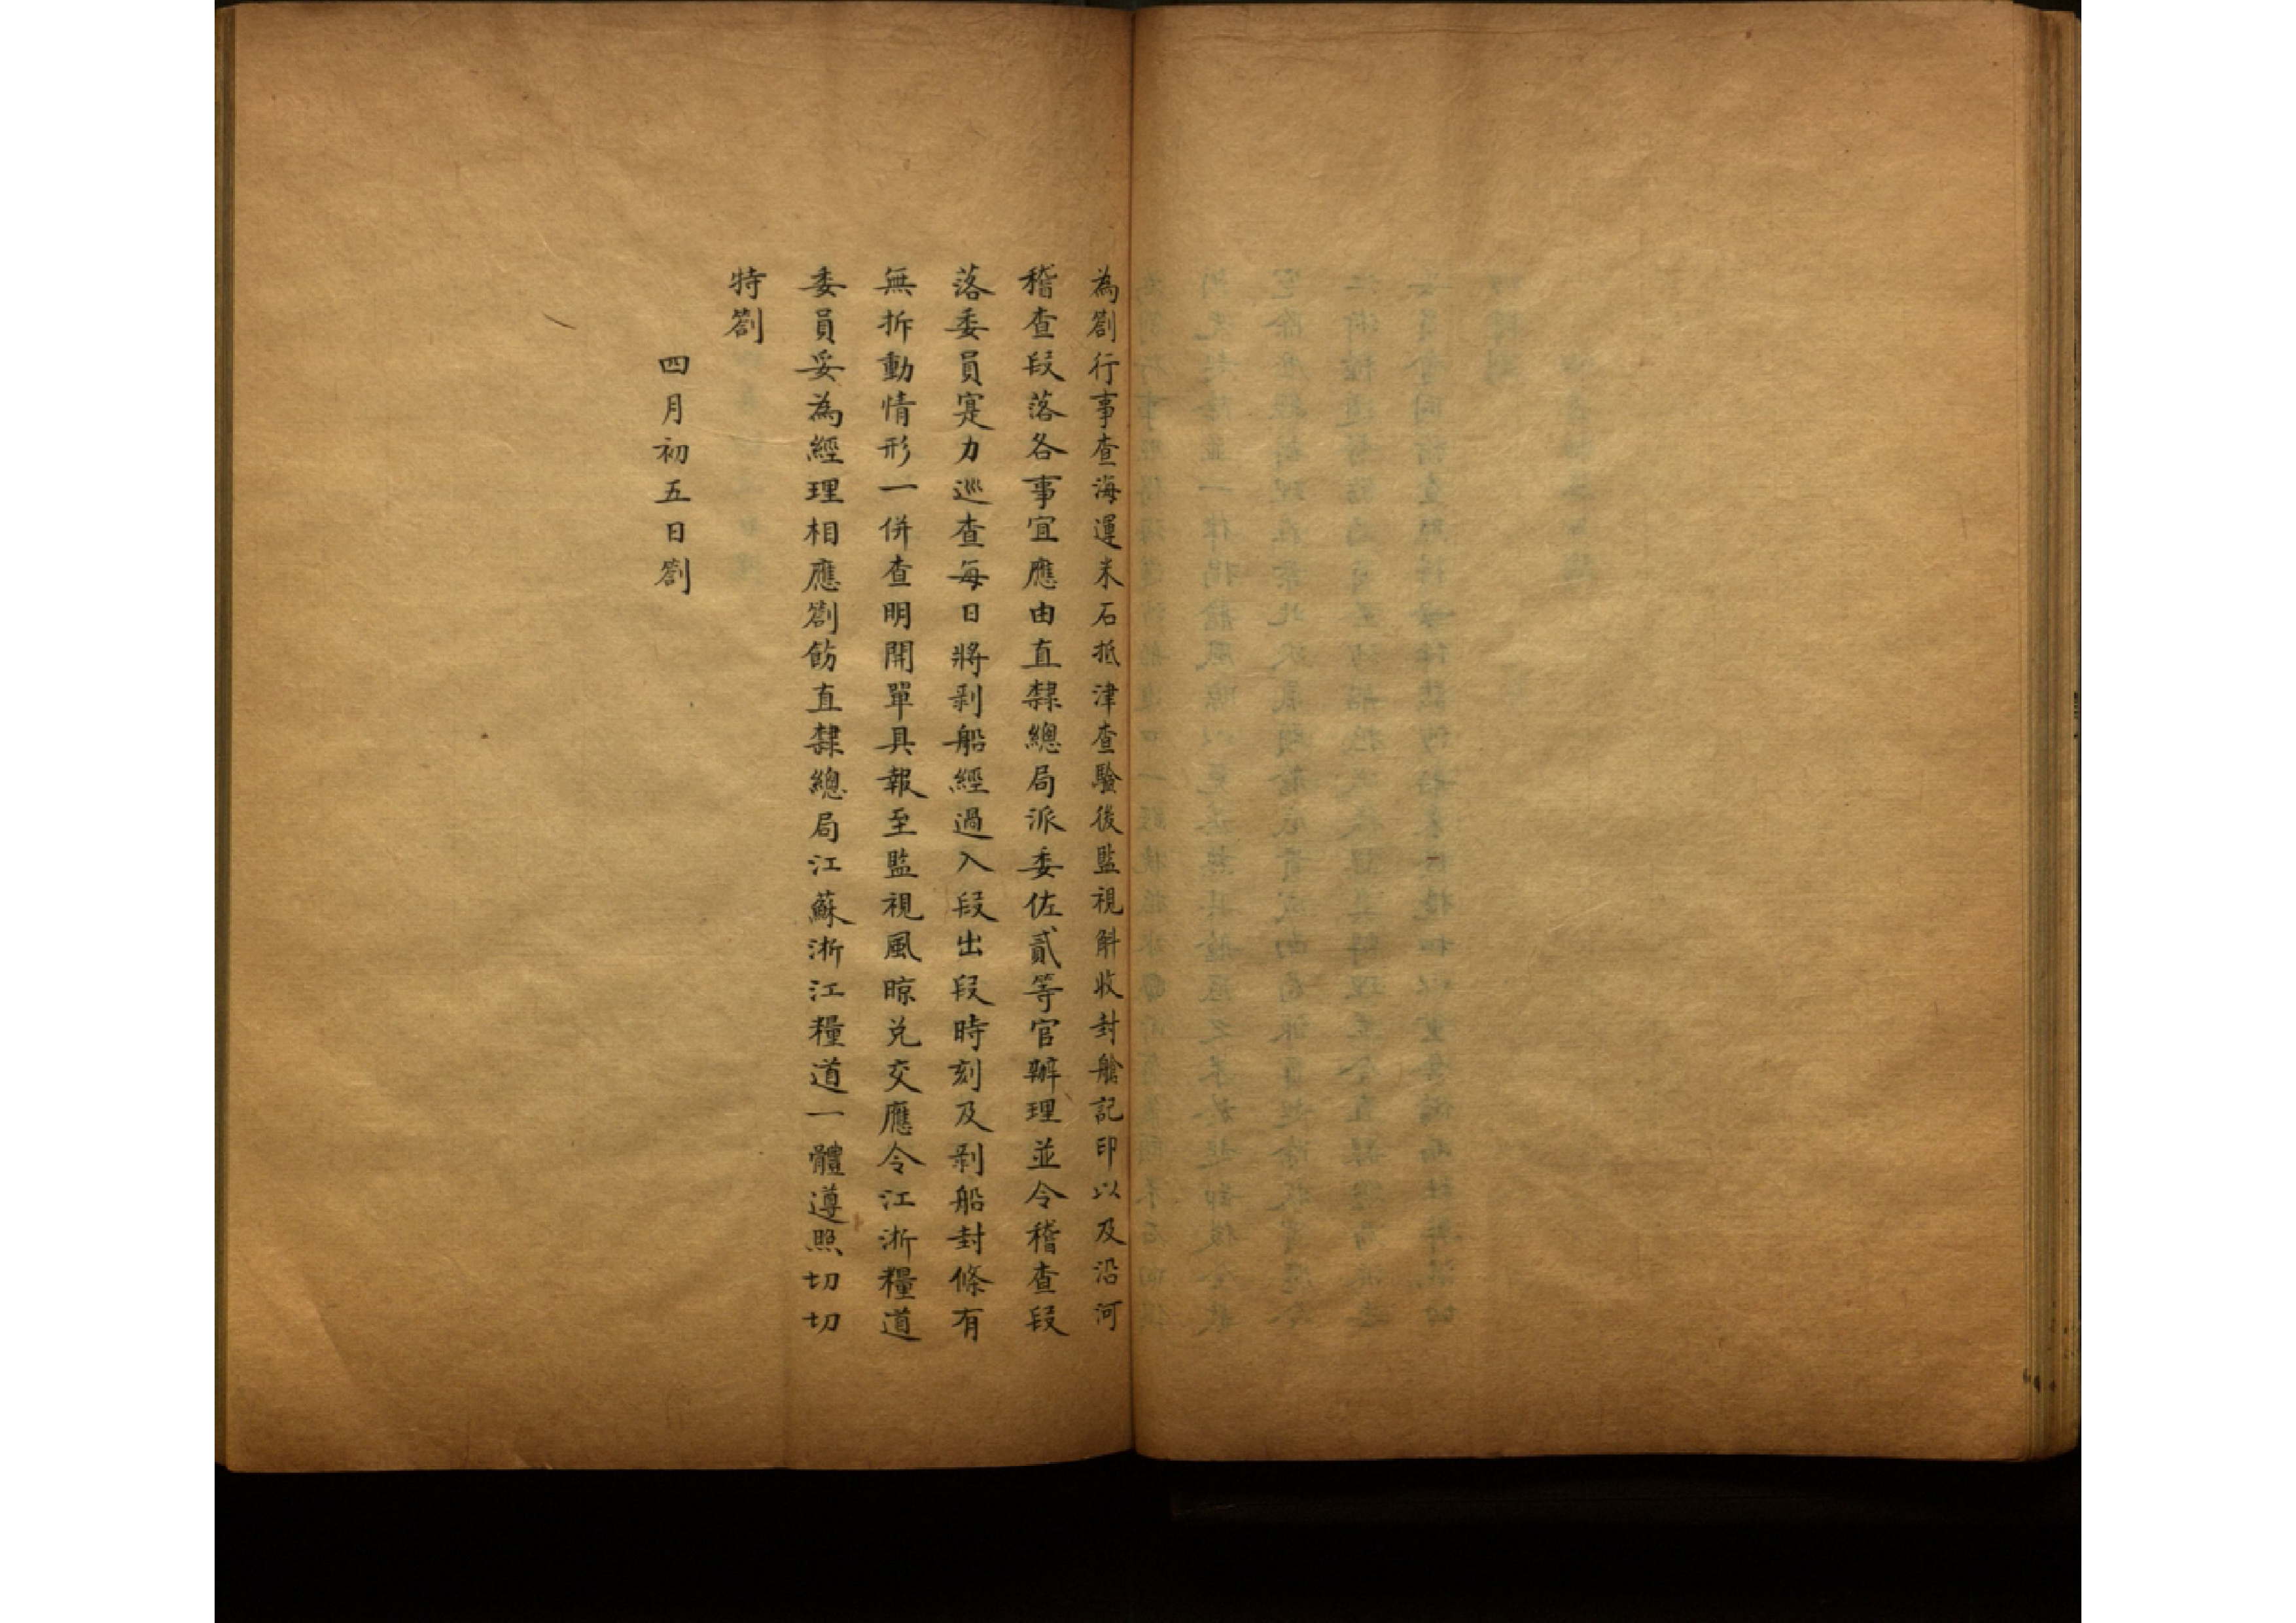 為劄行事查海運米石抵津查驗後監視斛收封艙記印以及沿河
稽查段落各事宜應由直隸總局派委佐貳等官辦理並令稽查段
落委員寔力巡查每日將剥船經過入段出段時刻及剥船封條有
無拆動情形一併查明開單具報至監視風晾兑交應令江浙糧道
委員妥為經理相應劄飭直隸總局江蘇浙江糧道一體遵照切切
特劄
四月初五日劄